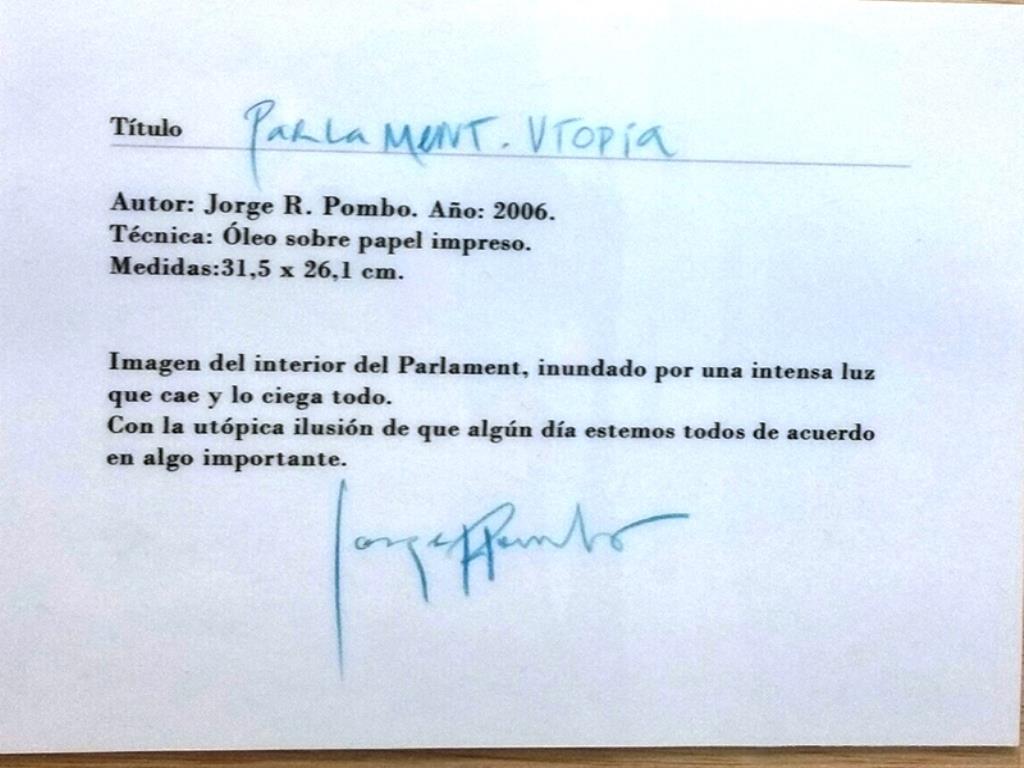 Título PARLAMENT. UTOPIA
Autor: Jorge R. Pombo. Año: 2006.
Técnica: Óleo sobre papel impreso.
Medidas:31,5 x 26,1 cm.
Imagen del interior del Parlament, inundado por una intensa luz
que cae y lo ciega todo.
Con la utópica ilusión de que algún día estemos todos de acuerdo
en algo importante.
Jorge R Pombo